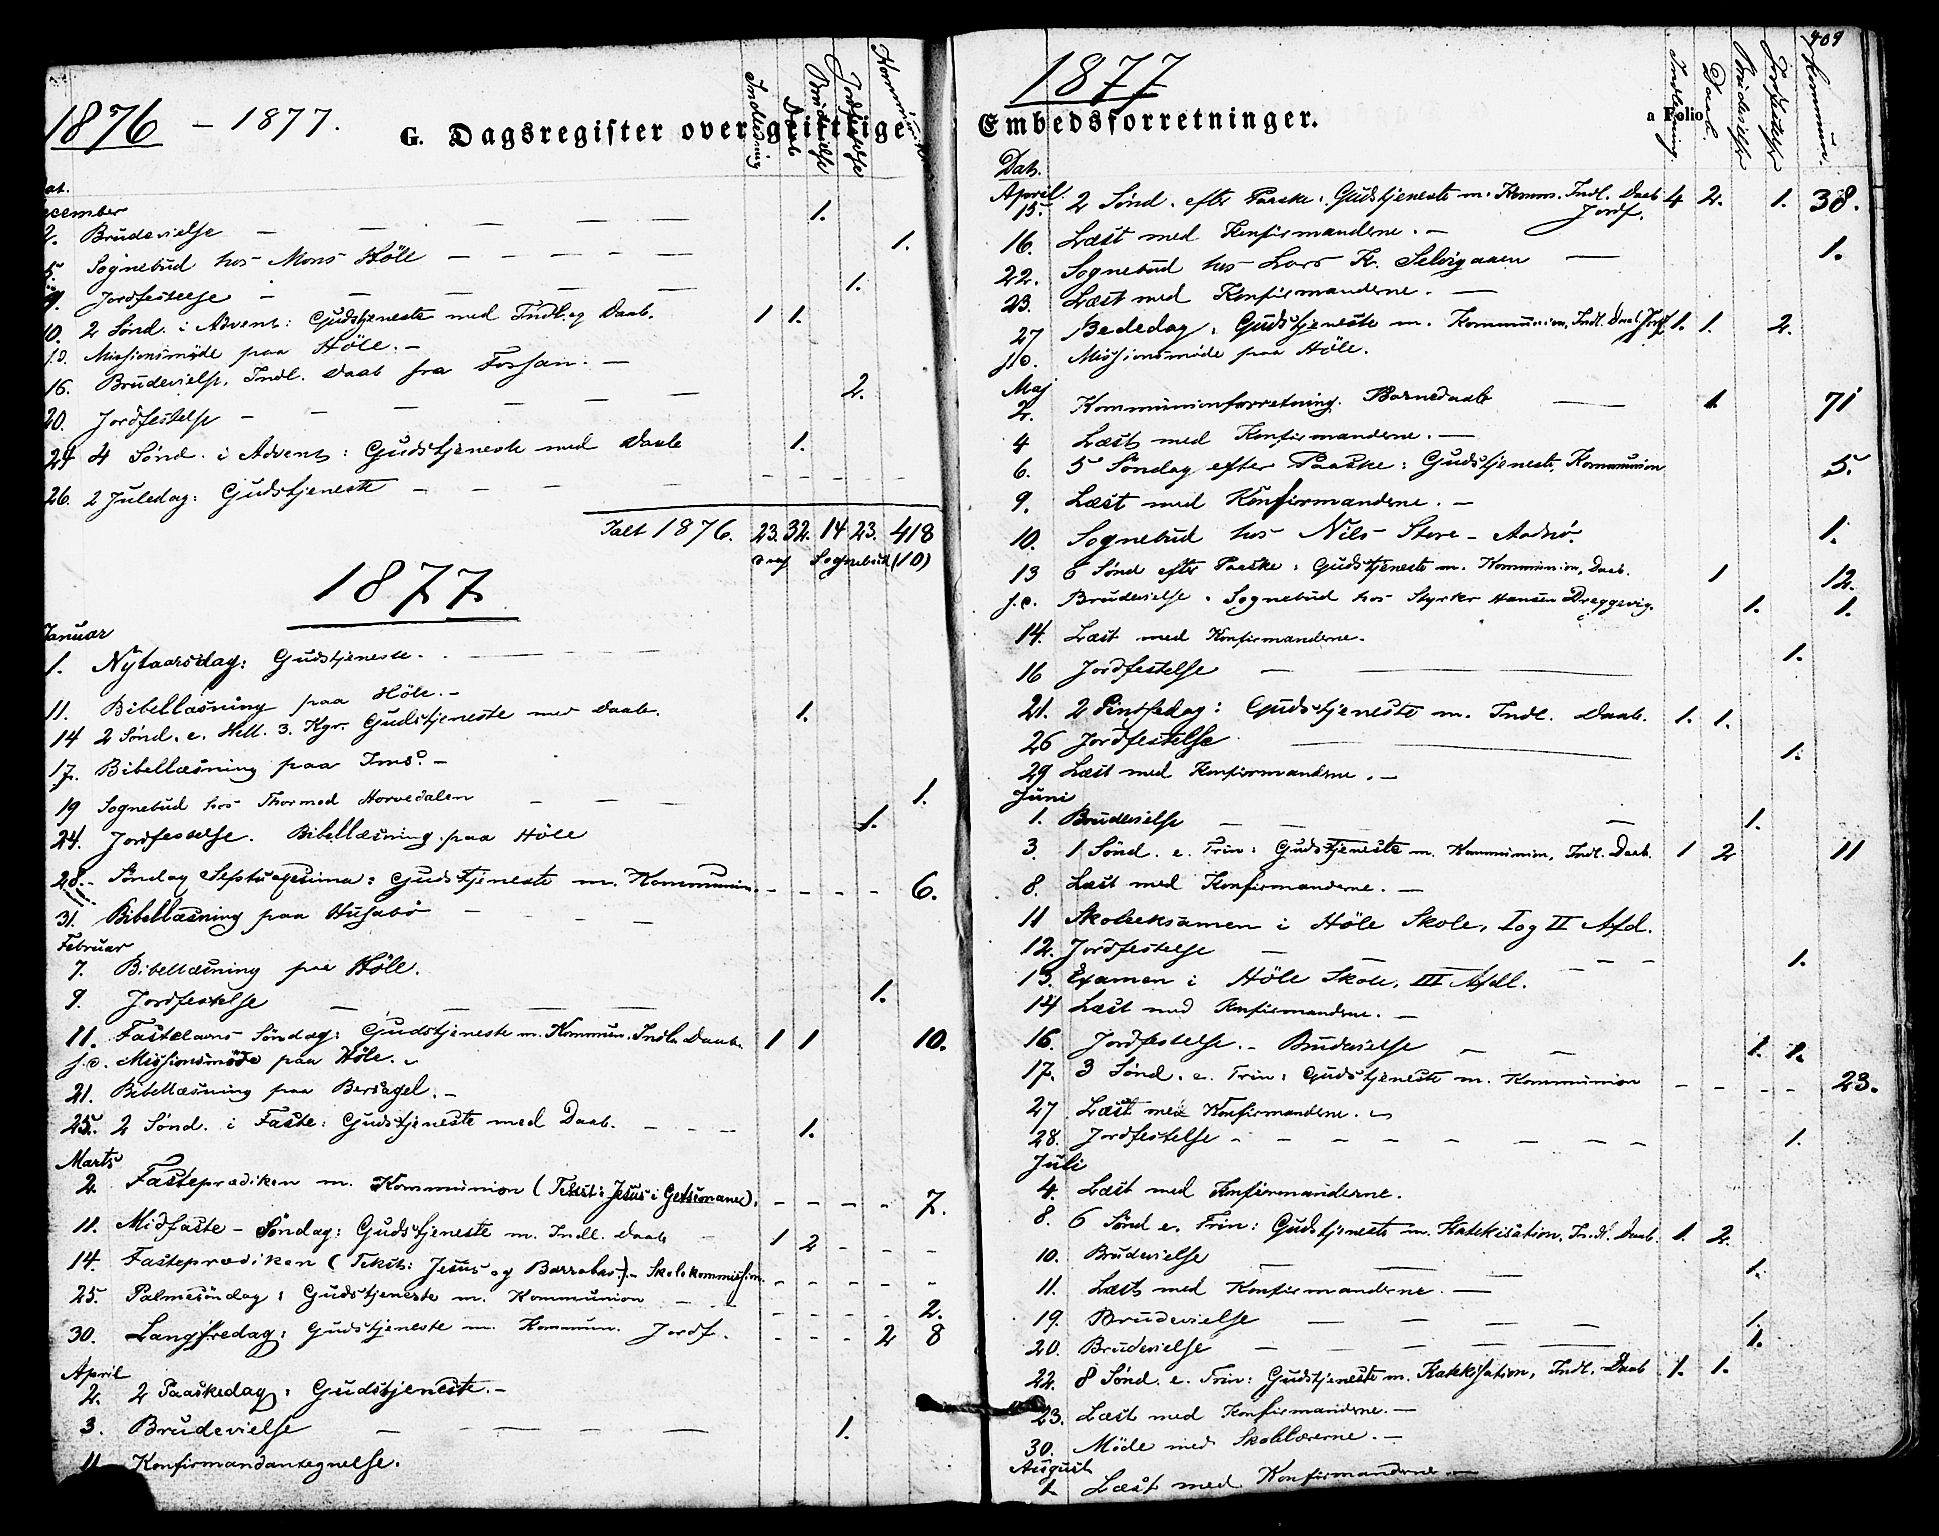 1876 - 1877.
G. Dagsregister over geistlige
Indledning
Daab
Brudevielse
Jordfestelse
Dat.
December
2. Brudevielse — — — — — 1.
5. Sognebud hos Mons Höle — — — — — 1.
9. Jordfestelse — — — — — 1.
10. 2 Sönd. i Advent: Gudstjeneste med Indl. og Daab. 1 1.
s.D. Missionsmöde paa Höle. —
16. Brudevielse, Indl. Daab fra Forsan. —
20. Jordfestelse — — — — — — 2.
24 4 Sönd. i Advent: Gudstjeneste med Daab 1.
26. 2 Juledag: Gudstjeneste — — — —
Ialt 1876. 23. 32. 14 23. 418
Sognebud (10)
1877
Januar
1. Nytaarsdag: Gudstjeneste. — — — —
11. Bibellæsning paa Höle. —
14 2 Sönd. e. Hell. 3. Kgr. Gudstjeneste med Daab. 1.
17. Bibellæsning paa Ims. —
19 Sognebud hos Thormod Horvedalen — — — 1.
24. Jordfestelse. Bibellæsning paa Höle 1.
28. Söndag Septuagesima: Gudstjeneste m. Kommunion. — — — — 6.
31. Bibellæsning paa Husabö — — — —
Februar
7. Bibellæsning paa Höle.
9. Jordfestelse — — — — 1.
11. Fastelavns-Söndag: Gudstjeneste m. Kommun. Indl. Daab. 1 1 10.
s.D. Missionsmöde paa Höle. —
21. Bibellæsning paa Bersagel. —
25. 2 Sönd. i Faste: Gudstjeneste med Daab. — — — 1.
Marts
2. Fasteprædiken m. Kommunion (Tekst: Jesus i Getsemanee). — — — — 7.
11. Midfaste-Söndag: Gudstjeneste m. Indl. Daab — 1 2 — — —
14. Fasteprædiken (Tekst: Jesus og Barrabas). — Skolekommission. — — — — —
25. Palmesöndag: Gudstjeneste m. Kommunion — — — — — — 2.
30. Langfredag: Gudstjeneste m. Kommun. Jordf. — — — 2 8
April
2. 2 Paaskedag: Gudstjeneste. —
3. Brudevielse — — — — — 1.
11 Konfirmandantegnelse.
1877
Embedsforretninger.
a Folio
409
Indledning.
Daab.
Brudevielse
Jordfestelse
Kommun.
Dat.
April.
15. 2 Sönd. efter Paaske: Gudstjeneste m. Komm. Indl. Daab 4 2. 1. 38.
Jordf.
16. Læst med Konfirmanderne. —
22. Sognebud hos Lars K. Selvigaaen — 1.
23. Læst med Konfirmanderne. —
27 Bededag: Gudstjeneste m. Kommunion, Indl. Daab Jordf. 1. 1. 2.
s.D. Missionsmöde paa Höle.
Maj
2. Kommunionforretning. Barnedaab — 1. 71
4 Læst med Konfirmanderne. —
6. 5 Söndag efter Paaske: Gudstjeneste, Kommunion 5.
9. Læst med Konfirmanderne. —
10. Sognebud hos Nils Store-Aadnö. 1.
13 6 Sönd efter Paaske: Gudstjeneste m. Kommunion, Daab. 1 12.
s.D. Brudevielse. Sognebud hos Styrker Hansen Dreggevig. 1. 1.
14. Læst med Konfirmanderne.
16 Jordfestelse — — 1.
21. 2 Pintsedag: Gudstjeneste m. Indl. Daab. 1. 1.
26 Jordfestelse — 1.
29 Læst med Konfirmanderne. —
Juni
1. Brudevielse — — — — 1.
3. 1 Sönd. e. Trin: Gudstjeneste m. Kommunion, Indl. Daab. 1 2 11
8. Læst med Konfirmanderne. —
11 Skoleeksamen i Höle Skole, I og II Afd.
12. Jordfestelse — — — — — — 1.
13. Examen i Höle Skole, III Afdl.
14 Læst med Konfirmanderne. —
16. Jordfestelse. — Brudevielse — — 1. 1.
17. 3 Sönd. e. Trin: Gudstjeneste m. Kommunion — — — — 23.
27 Læst med Konfirmanderne. —
28. Jordfestelse — — — — — — — — — 1.
Juli
4. Læst med Konfirmanderne.
8. 6 Sönd e. Trin: Gudstjeneste m. Katekisation, Indl. Daab. 1. 2.
10. Brudevielse — — — — 1.
11. Læst med Konfirmanderne. —
19. Brudevielse — — — — 1.
20. Brudevielse — — — — — 1.
22. 8 Sönd. e. Trin: Gudstjeneste m. Katekisation, Indl. Daab 1. 1.
23. Læst med Konfirmanderne. —
30. Möde med Skolelærerne. —
August
1 Læst med Konfirmanderne —